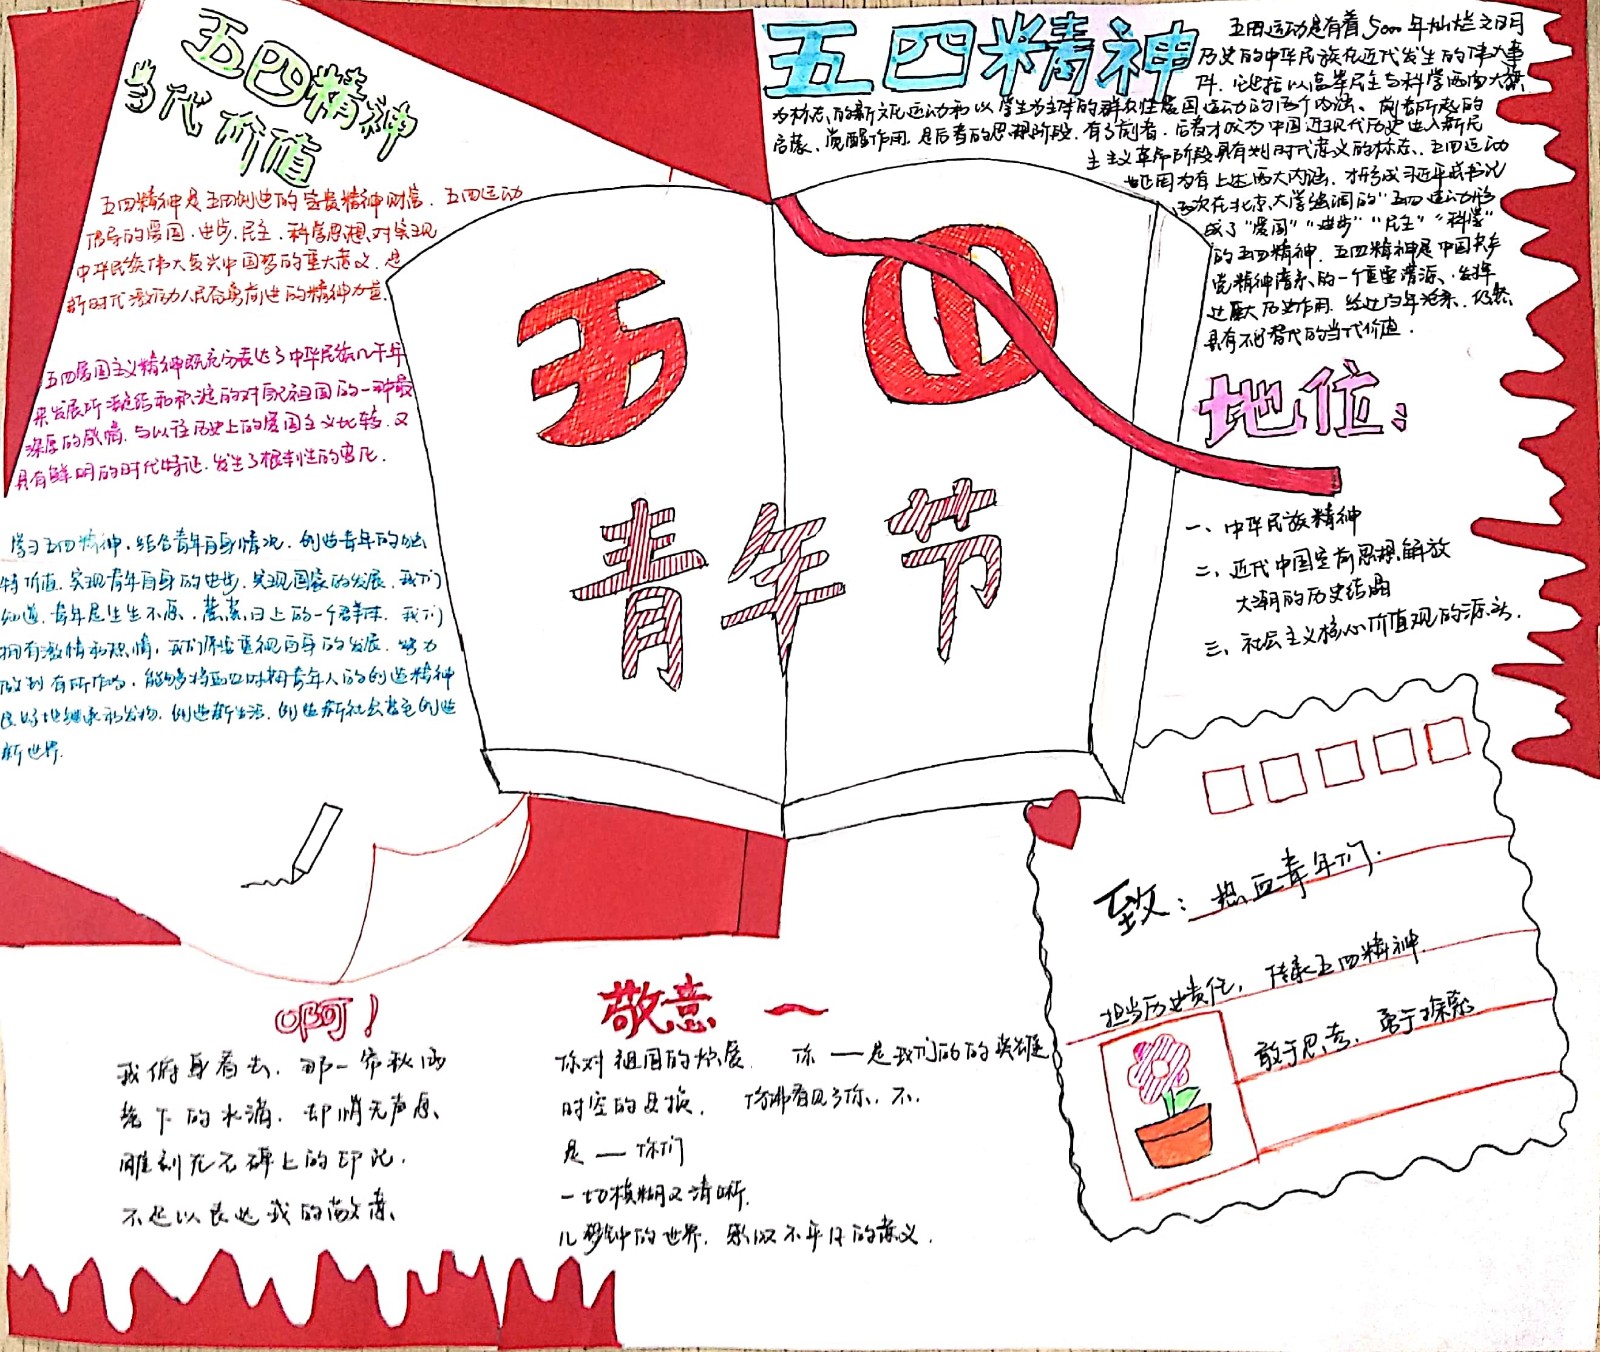 五四精神
当代价值
五四精神是五四创造的宝贵精神财富，五四运动
倡导的爱国、进步、民主、科学思想，对实现
中华民族伟大复兴中国梦的重大意义，是
新时代激励人民奋勇前进的精神力量。
五四爱国主义精神既充分表达了中华民族几千年
来发展所凝结和积淀的对祖国的一种最
深厚的感情，与以往历史上的爱国主义比较，又
具有鲜明的时代特征，发生了根本性的变化。
学习五四精神，结合青年自身情况，创造青年的独
特价值，实现青年自身的进步，实现国家的发展，我们
知道，青年是生生不息，蒸蒸日上的一个群体，我们
拥有激情和热情，我们应重视自身的发展，努力
做到有所作为，能够将五四时期青年人的创造精神
良好地继承和发扬，创造新生活，创造新社会甚至创造
新世界.
五四精神
五四运动是有着5000年灿烂文明
历史的中华民族在近代发生的伟大事
件，它包括以高举民主与科学两面大旗
为标志的新文化运动和以学生为主体的群众性爱国运动的两个内涵。前者所起的
启蒙、觉醒作用，是后者的思想阶段，有了前者，后者才成为中国近现代历史进入新民
主主义革命阶段具有划时代意义的标志、五四运动
也因为有上述两大内涵，才形成习近平总书记
多次在北京大学强调的“五四运动形
成了“爱国”“进步”“民主”“科学”
的五四精神，五四精神是中国共产
党精神谱系的一个重要源，发挥
过重大历史作用，经过百年沧桑，仍然
具有不可替代的当代价值.
五四
青年节
地位：
一、中华民族精神
二、近代中国空前思想解放
大潮的历史结晶
三、社会主义核心价值观的源头.
致：热血青年们.
担当历史责任，传承五四精神
敢于思考、勇于探索
啊！
我俯身看去，那一帘秋雨
落下的水滴，却悄无声息
雕刻在石碑上的印记，
不足以表达我的敬意、
敬意一
你对祖国的炽爱. 你——是我们的的英雄
时空的互换， 仿佛看见了你、不、
是——你们
一切模糊又清晰.
几秒钟的世界，思似不平凡的意义.